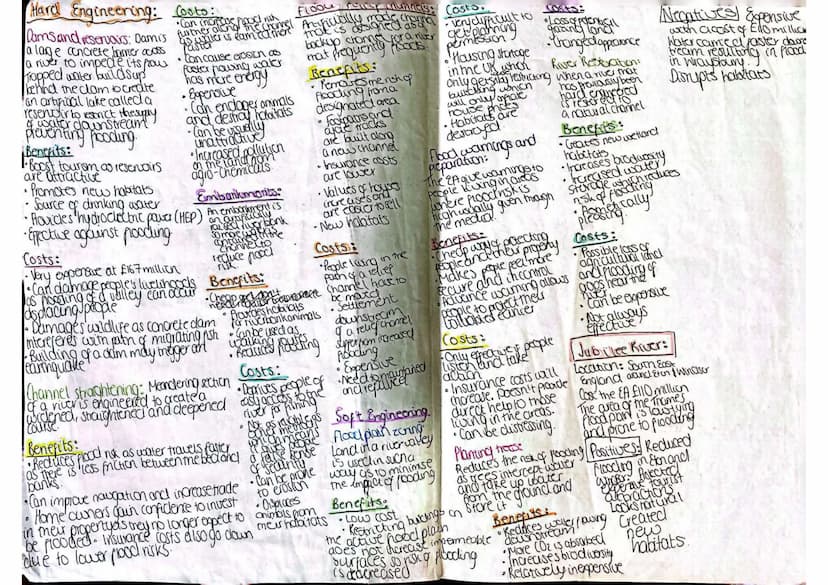 Hard Engineering:
Dams and reservoirs: Dam is
a large concrete barrier across
a river to impede its flow
trapped water builds up
behind the dam to create
an artificial lake called a
reservoir to restrict the supply
of water downstream
preventing flooding.
Benefits:
• Boost tourism as reservoirs
are attractive
• Promotes new habitats
• Source of drinking water
• Provides hydroelectric power (HEP)
• Effective against flooding
Costs:
• Very expensive at £167 million
• Can damage people's livelihoods
as flooding of a valley can occur
displacing people
• Damages wildlife as concrete dam
interferes with path of migrating fish
• Building of a dam may trigger an
earthquake
Channel straightening: Meandering section
of a river is engineered to create a
widened, straightened and deepened
course
Benefits:
• Reduces flood risk as water travels faster
as there is less friction between the bed and
banks
• Can improve navigation and increase trade
• Home owners gain confidence to invest
in their property as they no longer expect to
be flooded - insurance costs also go down
due to lower flood risks
Costs:
• Can increase flood risk
further along the channel
as water is carried there
faster
• Can cause erosion as
faster flowing water
has more energy
• Expensive
• Can endanger animals
and destroy habitats
• Can be visually
unattractive
• Increased pollution
on the land from
agro-chemicals
Embankments:
An embankment is
an artificially
raised river bank
so more water
channel to
reduce flood
risk
Benefits:
• Provides habitats
for riverbank animals
• Can be used as
walking routes
• Reduces flooding
Costs:
• Deprives people of
easy access to the
river for fishing
• Not as
a false sense
of security
• Can be prone
to erosion
• Displaces
animals from
their habitats
Flood relief channels:
Artificially made channel
that is designed as a
backup channel for a river
that frequently floods
Benefits:
• Removes the risk of
flooding from a
designated area
• Footpaths and
cycle tracks
are built along
a new channel
• Insurance costs
are lower
• Values of houses
increases and
are easier to sell
• New habitats
Costs:
• People living in the
path of a relief
channel have to
be moved
• Settlement
downstream
of a relief channel
suffer from increased
flooding
• Expensive
• Need to maintained
and repaired
Soft Engineering
Flood plain zoning
Land in a river valley
is used in such a
way as to minimise
the impact of flooding
Benefits:
• Low cost
• Restricting buildings on
the active flood plain
does not increase impermeable
surfaces so risk of flooding
is decreased
Costs:
• Very difficult to
get planning
permission
• Housing shortage
in the UK when
only
building which
will only make
house prices
• Habitats are
destroyed
Flood warnings and
preparation:
The EA give warnings to
people living in areas
where flood risk is
high usually given through
the media
Benefits:
• Cheap way of protecting
people and their property
• Makes people feel more
secure and in control
• Advance warning allows
people to protect their
valuables earlier
Costs:
• Only effective if people
listen and take
action
• Insurance costs will
increase. Doesn't provide
direct help to those
living in the areas.
Can be distressing.
Planting trees
Reduces the risk of flooding
as trees intercept water
and take up water
from the ground and
store it
Benefits:
• Reduces water flowing
downstream
• More CO2 is absorbed
• Increases biodiversity
• Relatively inexpensive
Costs:
• Loss of potential
grazing land
• Changed appearance
River Restoration:
When a river that
has previously been
hard engineered
is restored to
a natural channel
Benefits:
• Creates new wetland
habitats
• Increases biodiversity
• Increased water
storage which reduces
risk of flooding
• Aesthetically
pleasing.
Costs:
• Possible loss of
agricultural land
and flooding of
crops near the
river
• Can be expensive
• Not always
effective
Jubilee River:
Location: South East
England around Eton & Windsor
Cost the EA £110 million
The area of the Thames
flood plain is low lying
and prone to flooding
Positives: Reduced
flooding in Eton and
Windsor. Affected
Effective tourist
attractions
Looks natural
Created
new
habitats.
Negatives: Expensive
with a cost of £110 million
Water carried faster down
stream resulting in flood
in Wraysbury.
Disrupts habitats